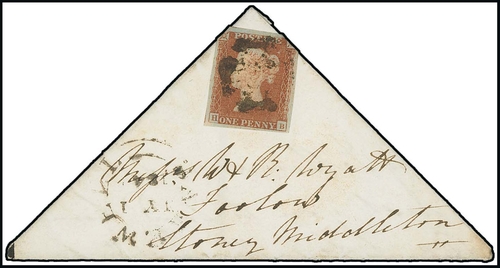 POSTAGE
ONE PENNY
Messrs W & R. Wyatt
Foolow
Stoney Middleton